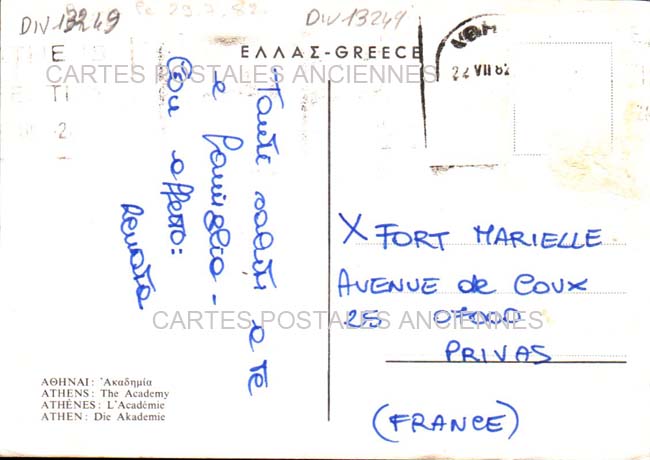 DIV 13249
Pc 29.7.82.
DIV 13249
E
TI
2
ΕΛΛΑΣ-GREECE
CARTES POSTALES ANCIENNES
22 VII 82
Tanti saluti e te
e famiglia -
Con affetto:
Renata
X FORT MARIELLE
AVENUE de COUX
25 07000
PRIVAS
(FRANCE)
CARTES POSTALES ANCIENNES
ΑΘΗΝΑΙ: Ἀκαδημία
ATHENS: The Academy
ATHÈNES: L'Académie
ATHEN: Die Akademie